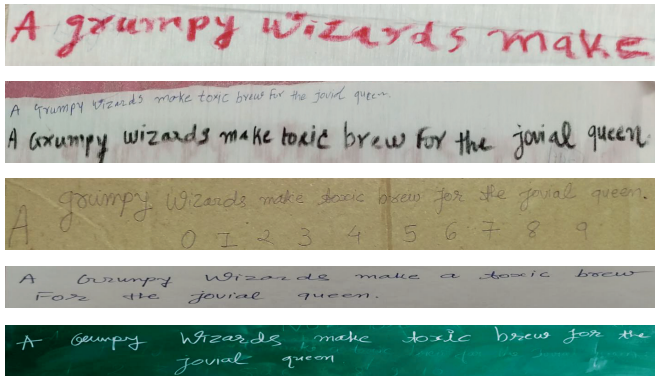 A grumpy wizards make
A Grumpy wizards make toxic brew For the jovial queen.
A Grumpy wizards make toxic brew For the jovial queen
A grumpy Wizards make toxic brew for the jovial queen.
0 1 2 3 4 5 6 7 8 9
A Grumpy Wizards make a toxic brew
For the jovial queen.
A Grumpy Wizards make toxic brew for the
jovial queen